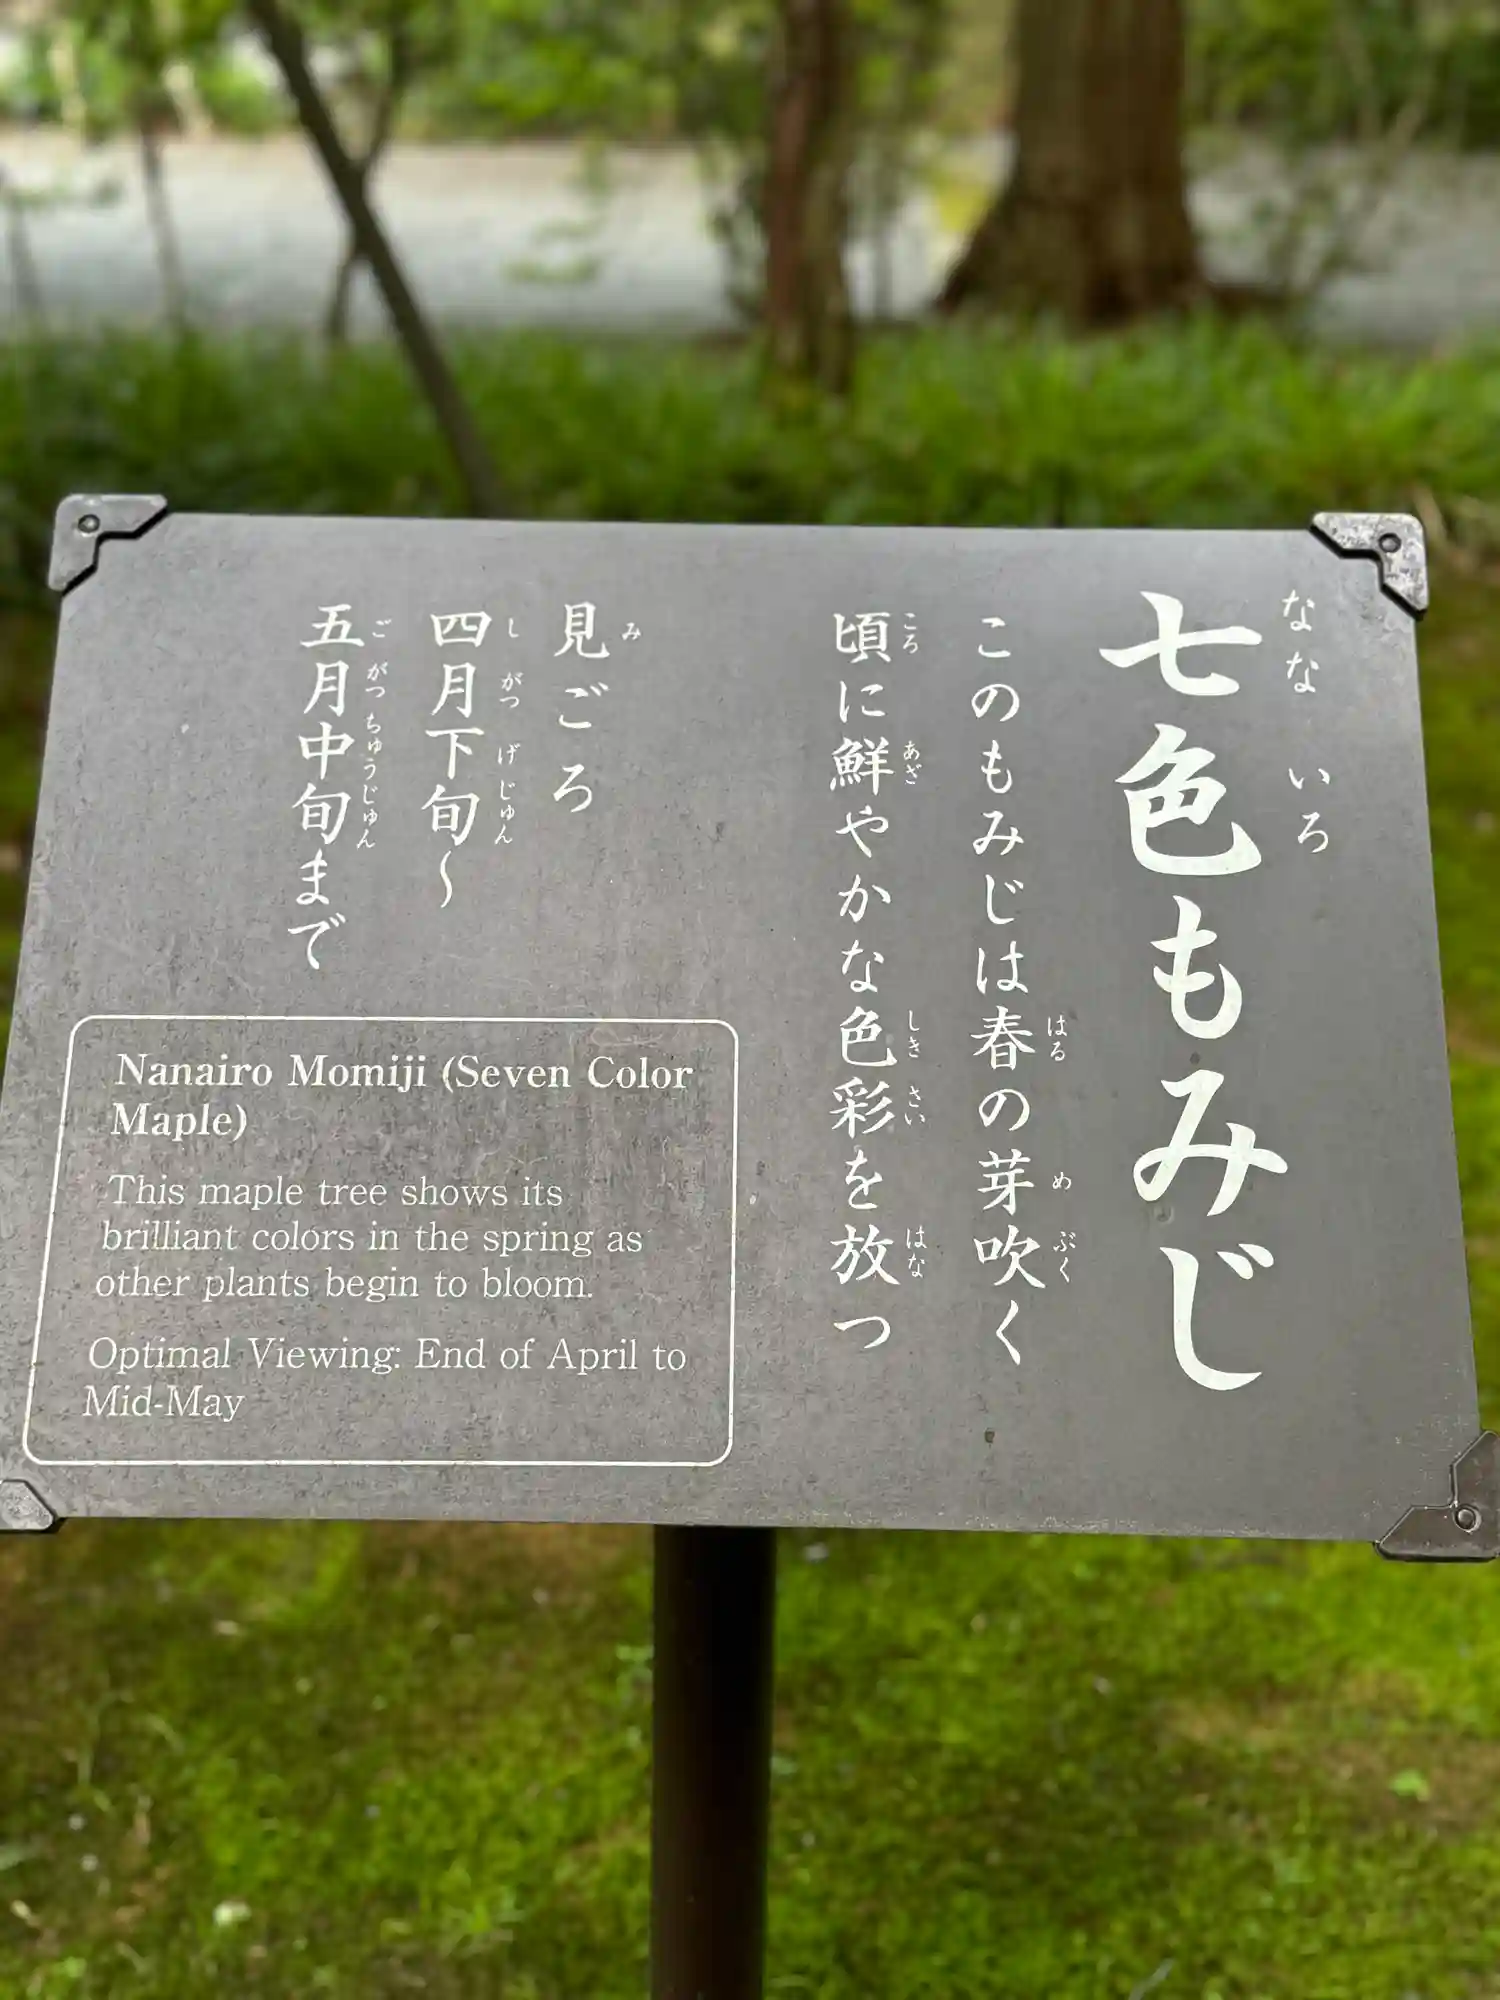 七色もみじ
なないろ
このもみじは春の芽吹く
はるめぶく
頃に鮮やかな色彩を放つ
ころあざしきさいはな
見ごろ
み
四月下旬〜
しがつげじゅん
五月中旬まで
ごがつちゅうじゅん
Nanairo Momiji (Seven Color
Maple)
This maple tree shows its
brilliant colors in the spring as
other plants begin to bloom.
Optimal Viewing: End of April to
Mid-May